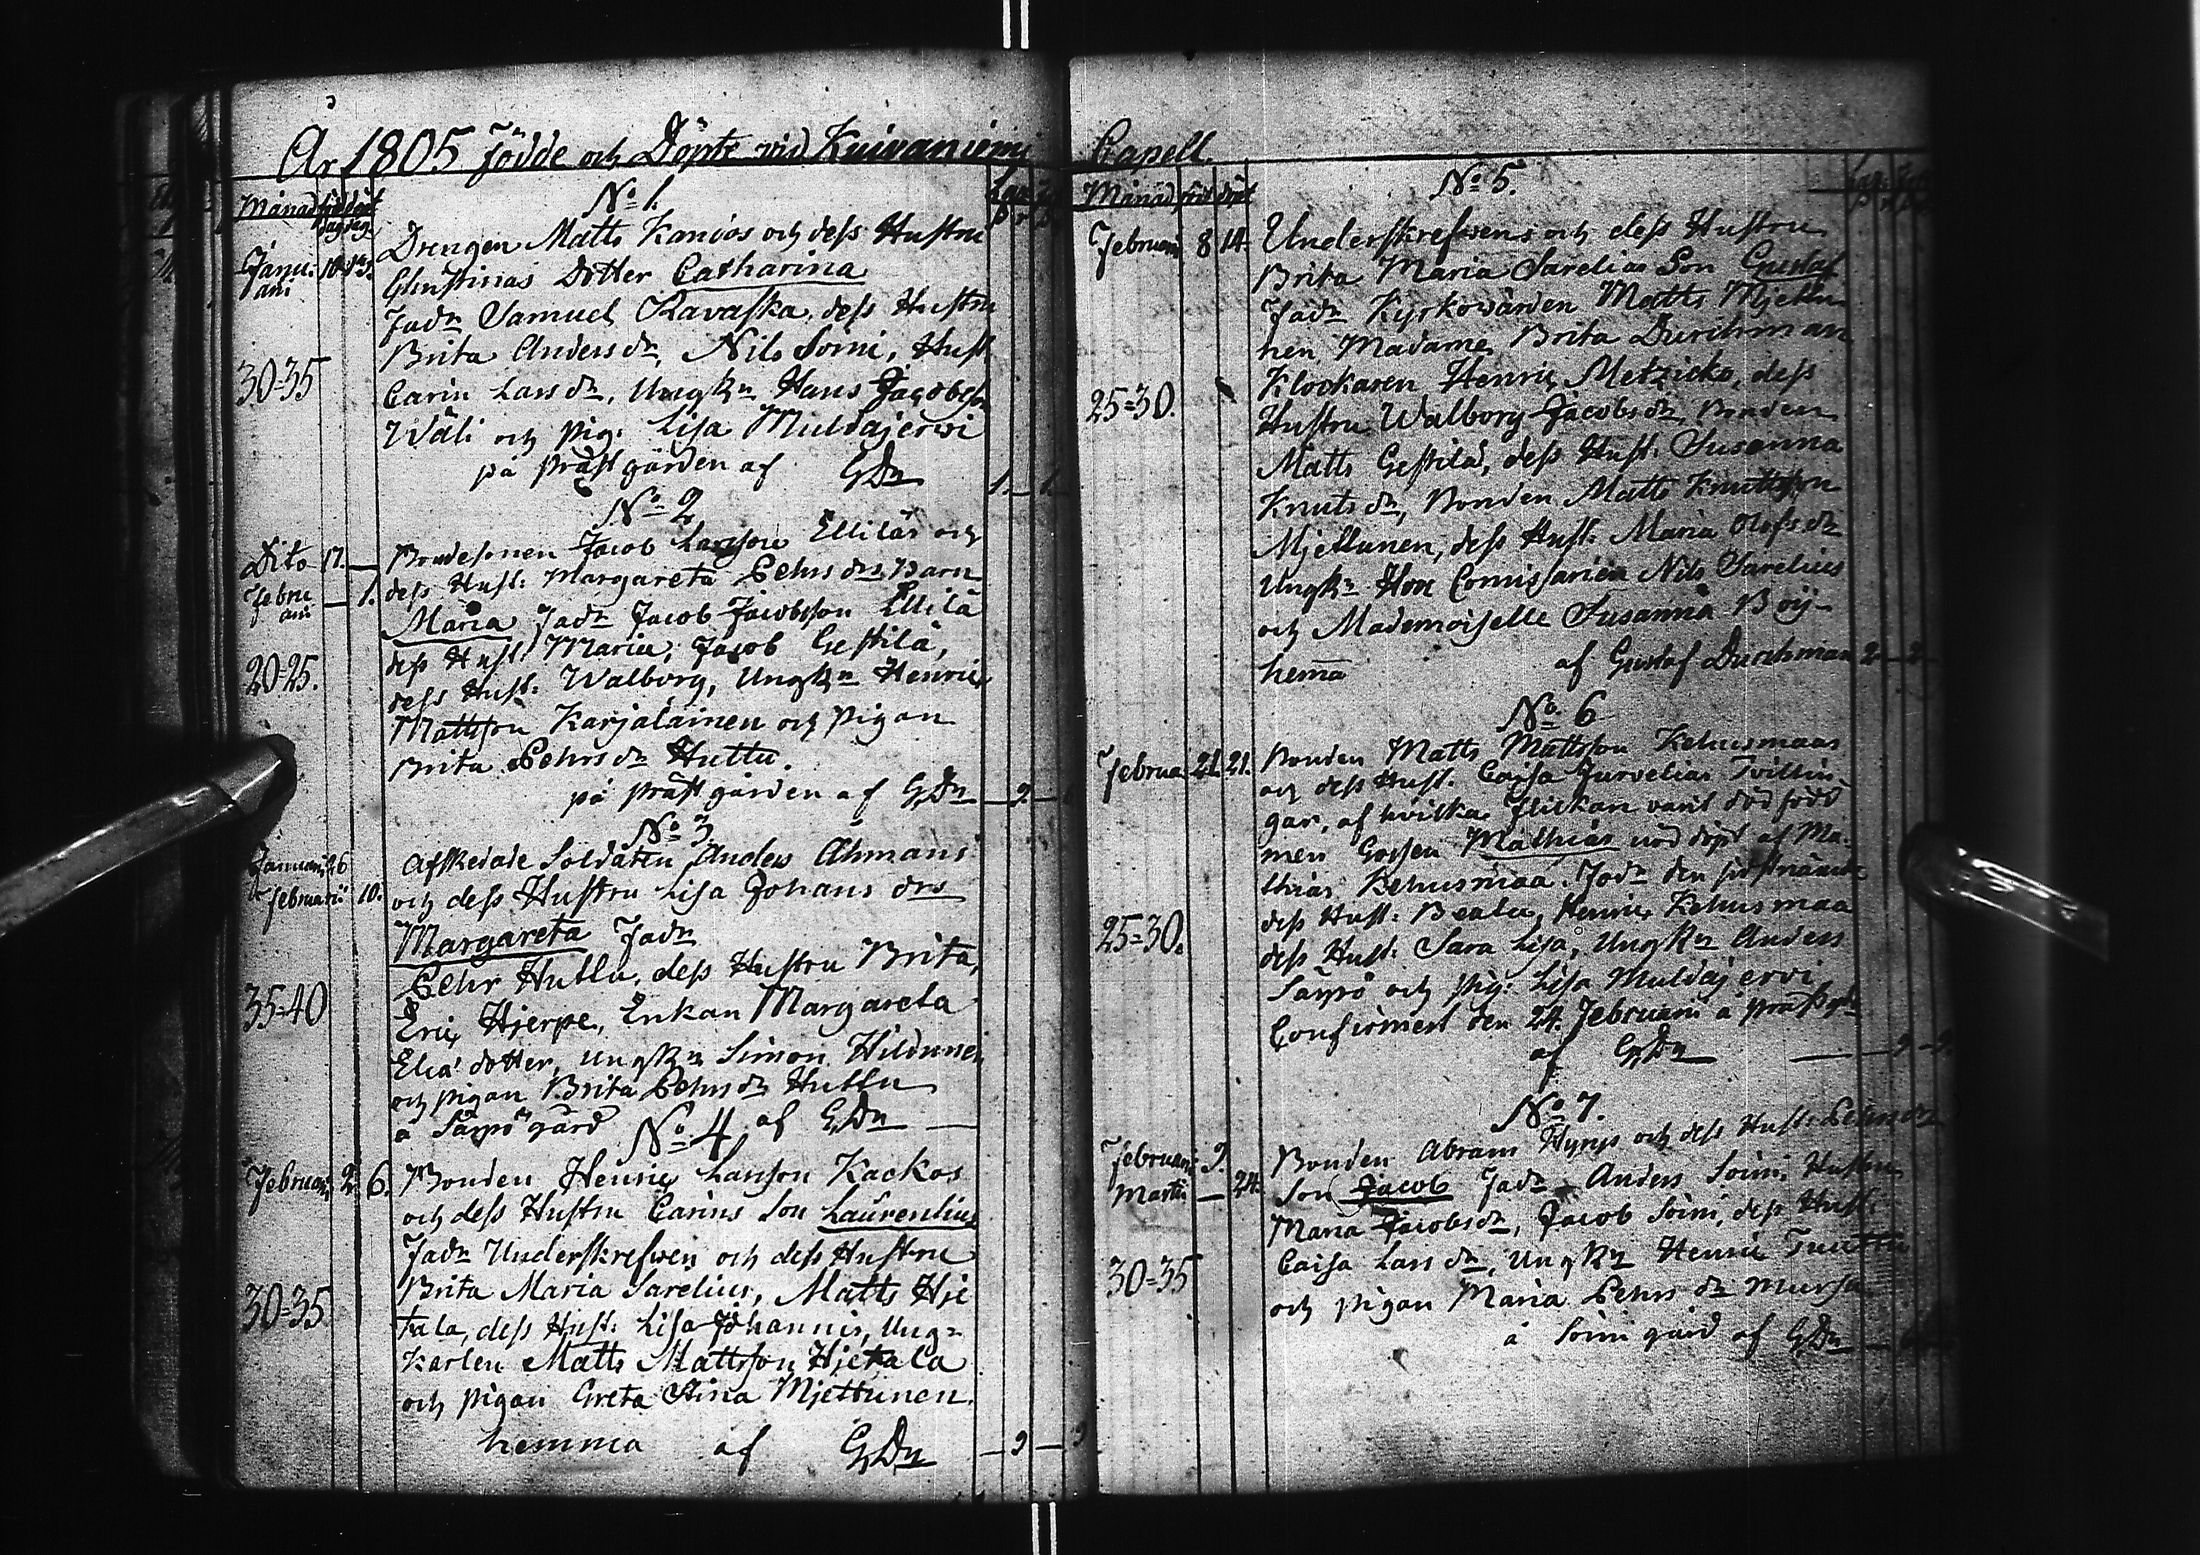 År 1805 Födde och Döpte vid Kuivaniemi Capell.
Månad
No 1.
Janu:
arii
Drengen Matts Kanios och dess Hustru
Christinas Dotter Catharina
Fadr Samuel Ravaska, dess Hustru
30=35
Brita Andersdr, Nils Sorni, Hust
Carin Larsdr, Ungkn Hans Jacobsson
Wäli och pig. Lisa Muldajerwi
på prästgården af GDn 1. 1.
No 2
Dito 17.
Bondesonen Jacob Larsson Elliläs och
Febru
arii 1.
dess Hust: Margareta Pehrsdrs Barn
Maria Fadr Jacob Jacobsson Ellilä
20=25.
dess Hust: Maria, Jacob Gestilä,
dess Hust: Walborg, Ungkn Henric
Mattsson Karjalainen och pigan
Brita Pehrsdr Huttu.
på prästgården af GDn
No 3
Januarii 26
Februarii 10.
Afskedade Soldaten Anders Ahmans
och dess Hustru Lisa Johansdrs
Margareta Fadr
35=40
Pehr Huttu, dess Hustru Brita,
Eric Hjerpe, Enkan Margareta
Eliædotter, Ungkn Simon Hildunen
och pigan Brita Pehrsdr Huttu
å Särpö gård af GDn
No 4
Februarii 2. 6.
Bonden Henric Larsson Kackos
och dess Hustru Carins Son Laurentius
Fadr Underskrefven och dess Hustru
30=35
Brita Maria Sarelius, Matts Hje
tala, dess Hust: Lisa Johannis, Ung=
karlen Matts Mattsson Hjetala
och pigan Greta Stina Mjettunen.
hemma af GDn
Månad född döpt
No 5.
Februarii 8 14.
Underskrefvens och dess Hustru
Brita Maria Sarelias Son Gustaf
Fadr Kyrkowärden Matts Mjettu
nen Madame Brita Durchman
25=30.
Klockaren Henric Metzicko, dess
Hustru Walborg Jacobsdr, Bonden
Matts Gestilä, dess Hust: Susanna
Knutsdr, Bonden Matts Knutsson
Mjettunen, dess Hust: Maria Olofsdr
Ungkn Herr Comissarien Nils Sarelius
och Mademoiselle Susanna Boij
hem̄a af Gustaf Durchman 2. 2
No 6
Februa: 21. 21.
Bonden Matts Mattsson Kehusmaas
och dess Hust. Caisa Jurvelias Tvillin
gar, af hvilka flickan varit död född
men Gossen Mathias nöd döpt af Ma-
thias Kehusmaa. Fadr den sistnämde
25=30.
dess Hust: Beata, Henric Kehusmaa
dess Hust: Sara Lisa, Ungkn Anders
Särpö och pig: Lisa Muldajervi
Confirmert den 24. Februarii å prästgdn
af GDn
No 7.
Februarii 9.
Martii 24.
Bonden Abram Hyrys och dess Hust:
Son Jacob Fadr Anders Soini, Hustru
Maria Jacobsdr, Jacob Soini, dess Hust:
30=35
Caisa Larsdr, Ungkn Henric Tuuttu
och pigan Maria Pehrsdr Mursu
å Soini gård af GDn